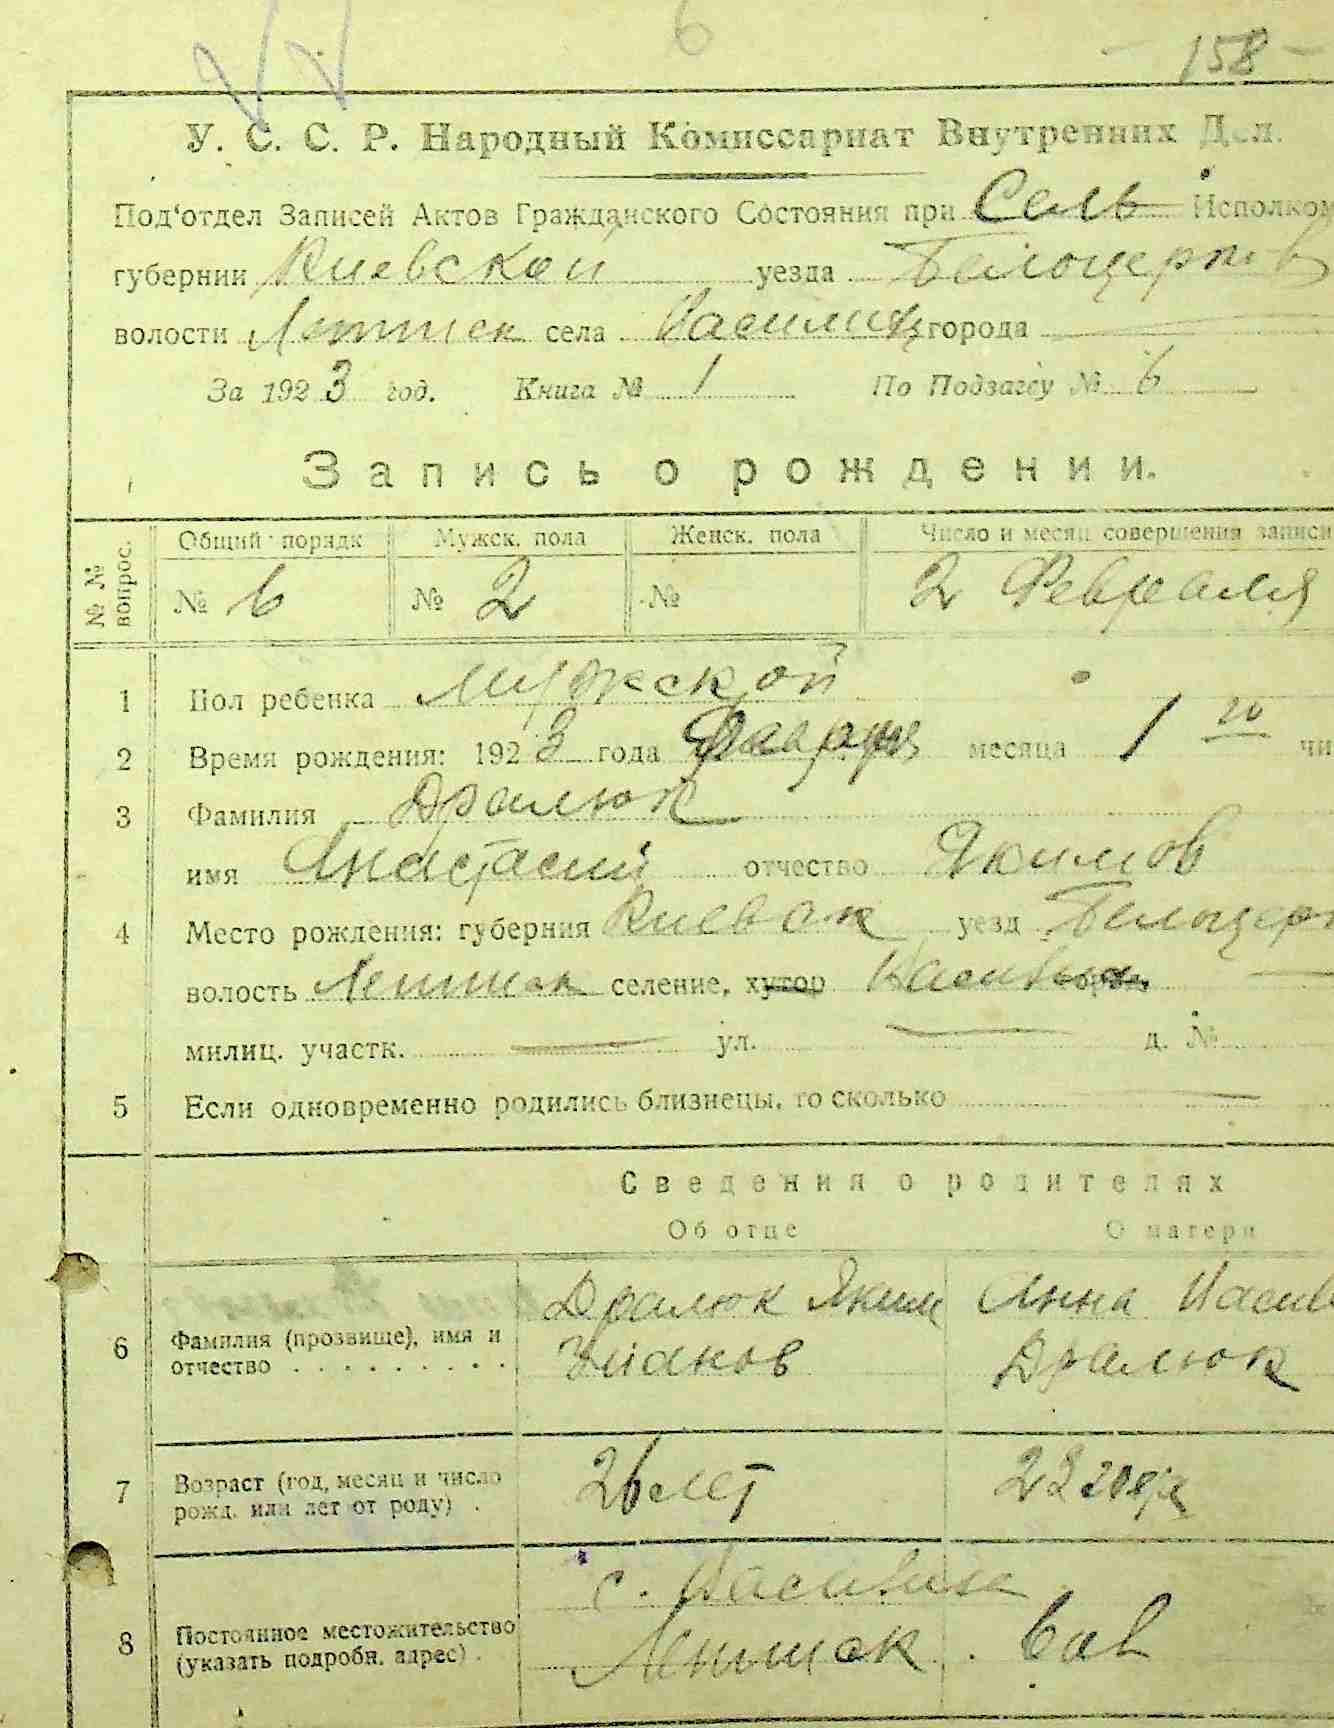 6
- 158 -
У. С. С. Р. Народный Комиссариат Внутренних Дел.
Под'отдел Записей Актов Гражданского Состояния при Сель Исполком
губернии Киевской уезда Белоцерков
волости села города
За 1923 год. Книга № 1 По Подзагсу № 6
Запись о рождении.
№ № вопрос.
Общий порядк Мужск. пола Женск. пола Число и месяц совершения записи
№ 6 № 2 № 2 Февраля
1 Пол ребенка Мужской
2 Время рождения: 1923 года месяца 1 го чи
3 Фамилия Дралюк
имя Анастасий отчество Якимов
4 Место рождения: губерния Киевск уезд Белоцерк
волость селение, хутор
милиц. участк. ул. д. №
5 Если одновременно родились близнецы, то сколько
Сведения о родителях
Об отце О матери
6 Фамилия (прозвище), имя и отчество Дралюк Яким Анна Дралюк
7 Возраст (год, месяц и число рожд. или лет от роду) 26 лет 23
8 Постоянное местожительство (указать подробн. адрес) с.